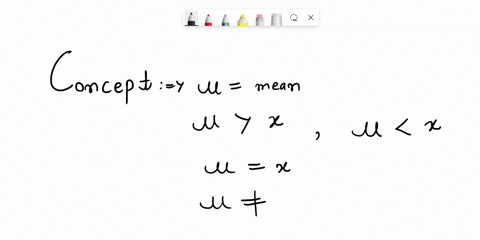 Concept :⇒ μ = mean
μ > x , μ < x
μ = x
μ ≠